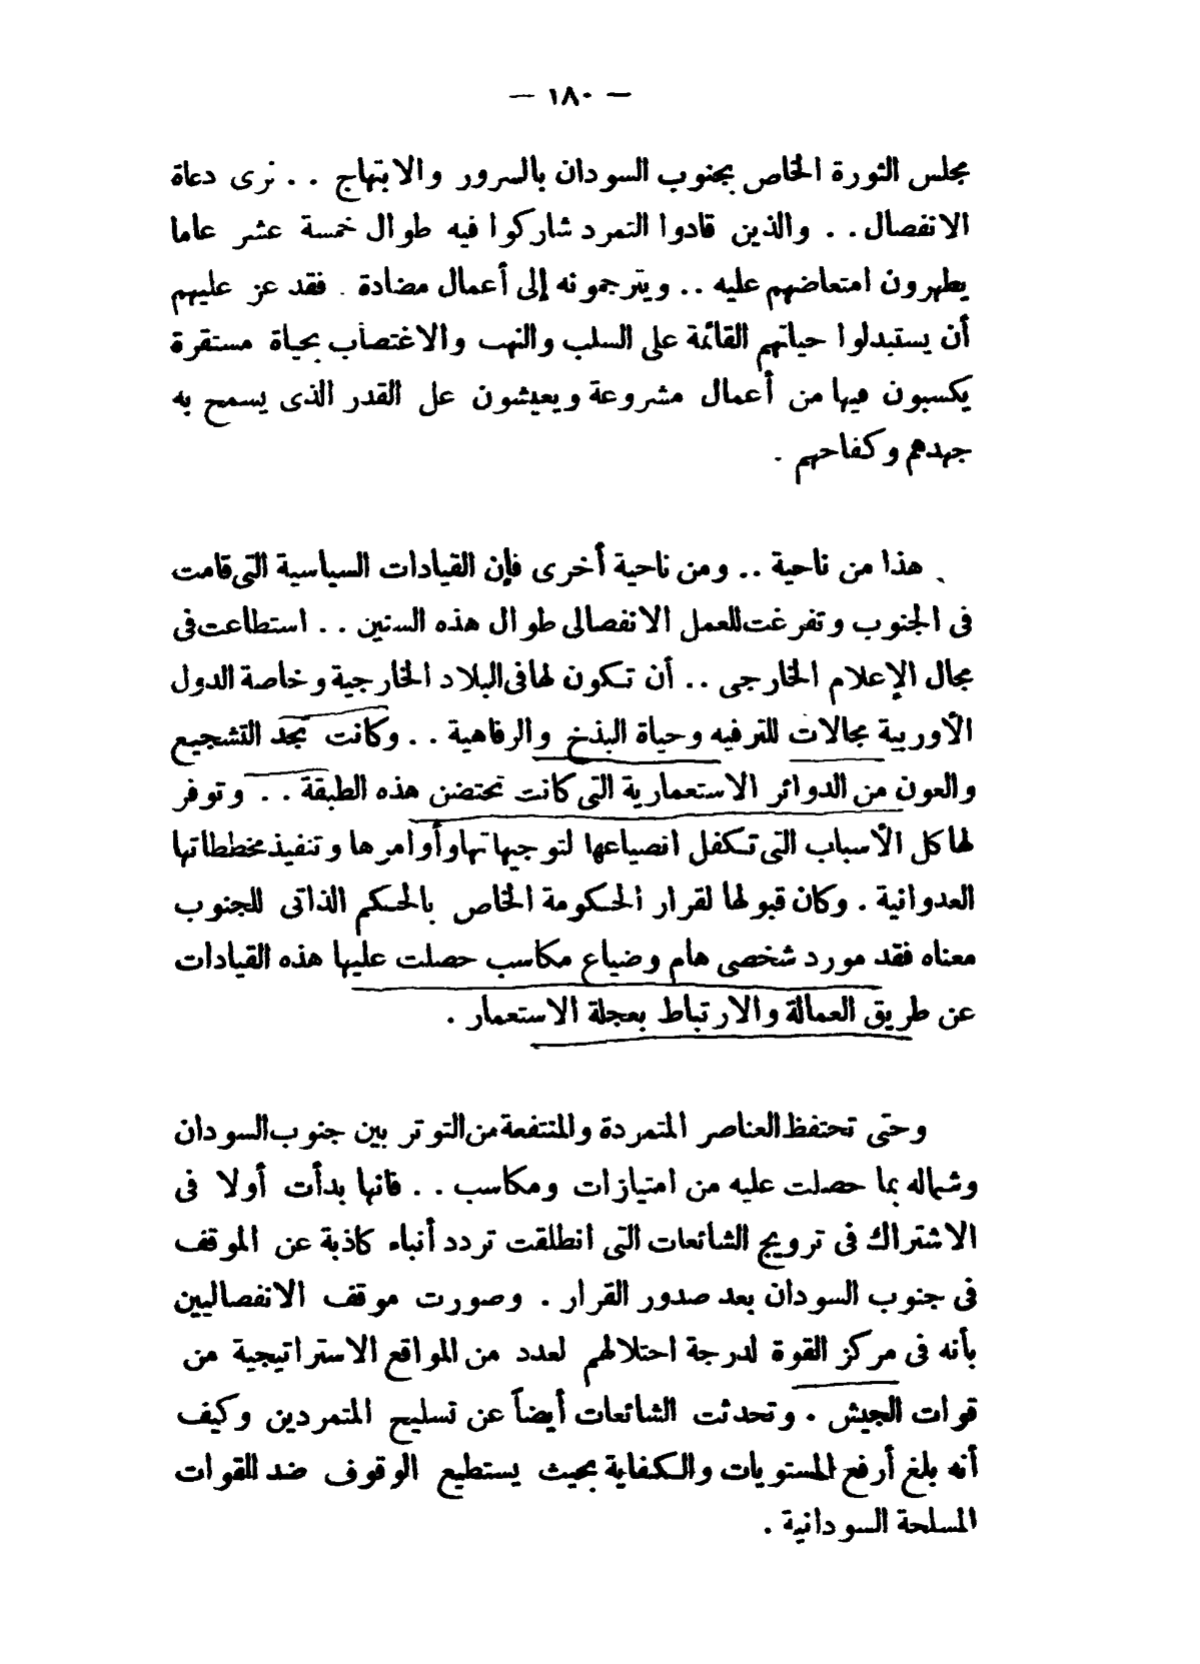 — ١٨٠ —
مجلس الثورة الخاص بجنوب السودان بالسرور والابتهاج . . نرى دعاة
الانفصال . . والذين قادوا التمرد شاركوا فيه طوال خمسة عشر عاما
يظهرون امتعاضهم عليه . . ويترجمونه إلى أعمال مضادة . فقد عز عليهم
أن يستبدلوا حياتهم القائمة على السلب والنهب والاغتصاب بحياة مستقرة
يكسبون فيها من أعمال مشروعة ويعيشون على القدر الذى يسمح به
جهدهم وكفاحهم .
هذا من ناحية . . ومن ناحية أخرى فإن القيادات السياسية التى قامت
فى الجنوب وتفرغت للعمل الانفصالى طوال هذه السنين . . استطاعت فى
مجال الإعلام الخارجى . . أن تكون لها فى البلاد الخارجية وخاصة الدول
الأوربية مجالات للترفيه وحياة البذخ والرفاهية . . وكانت تجد التشجيع
والعون من الدوائر الاستعمارية التى كانت تحتضن هذه الطبقة . . وتوفر
لها كل الأسباب التى تكفل انصياعها لتوجيهاتها وأوامرها وتنفيذ مخططاتها
العدوانية . وكان قبولها لقرار الحكومة الخاص بالحكم الذاتى للجنوب
معناه فقد مورد شخصى هام وضياع مكاسب حصلت عليها هذه القيادات
عن طريق العمالة والارتباط بعجلة الاستعمار .
وحتى تحتفظ العناصر المتمردة والمنتفعة من التوتر بين جنوب السودان
وشماله بما حصلت عليه من امتيازات ومكاسب . . فانها بدأت أولا فى
الاشتراك فى ترويج الشائعات التى انطلقت تردد أنباء كاذبة عن الموقف
فى جنوب السودان بعد صدور القرار . وصورت موقف الانفصاليين
بأنه فى مركز القوة لدرجة احتلالهم لعدد من المواقع الاستراتيجية من
قوات الجيش . وتحدثت الشائعات أيضاً عن تسليح المتمردين وكيف
أنه بلغ أرفع المستويات والكفاية بحيث يستطيع الوقوف ضد القوات
المسلحة السودانية .